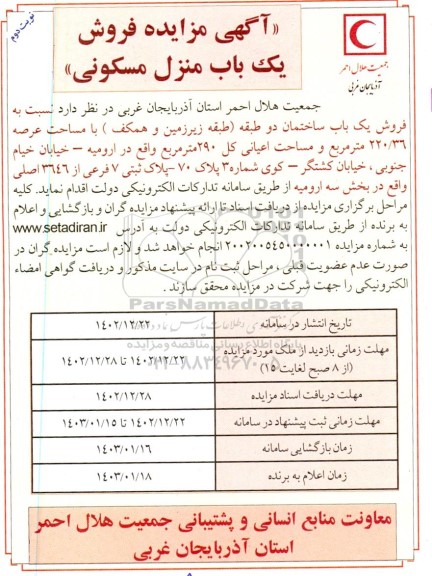 نوبت دوم
«آگهی مزایده فروش
یک باب منزل مسکونی»
جمعیت هلال احمر
آذربایجان غربی
جمعیت هلال احمر استان آذربایجان غربی در نظر دارد نسبت به
فروش یک باب ساختمان دو طبقه (طبقه زیرزمین و همکف ) با مساحت عرصه
۲۲۰/۳۶ مترمربع و مساحت اعیانی کل ۲۹۰مترمربع واقع در ارومیه – خیابان خیام
جنوبی ، خیابان کشتگر – کوی شماره۳ پلاک ۷۰ –پلاک ثبتی ۷ فرعی از ۳۶۴۶ اصلی
واقع در بخش سه ارومیه از طریق سامانه تدارکات الکترونیکی دولت اقدام نماید. کلیه
مراحل برگزاری مزایده از دریافت اسناد تا ارائه پیشنهاد مزایده گران و بازگشایی و اعلام
به برنده از طریق سامانه تدارکات الکترونیکی دولت به آدرس www.setadiran.ir
به شماره مزایده ۲۰۰۲۰۰۵۴۵۰۰۰۰۰۰۱ انجام خواهد شد و لازم است مزایده گران در
صورت عدم عضویت قبلی ، مراحل ثبت نام در سایت مذکور و دریافت گواهی امضاء
الکترونیکی را جهت شرکت در مزایده محقق سازند .
ParsNamadData
تاریخ انتشار در سامانه ۱۴۰۲/۱۲/۲۲
مهلت زمانی بازدید از ملک مورد مزایده (از ۸ صبح لغایت ۱۵) ۱۴۰۲/۱۲/۲۲ تا ۱۴۰۲/۱۲/۲۸
پایگاه اطلاع رسانی مناقصه و مزایده
۰۲۱-۸۸۳۴۹۶۷۰
مهلت دریافت اسناد مزایده ۱۴۰۲/۱۲/۲۸
مهلت زمانی ثبت پیشنهاد در سامانه ۱۴۰۲/۱۲/۲۲ تا ۱۴۰۳/۰۱/۱۵
زمان بازگشایی سامانه ۱۴۰۳/۰۱/۱۶
زمان اعلام به برنده ۱۴۰۳/۰۱/۱۸
معاونت منابع انسانی و پشتیبانی جمعیت هلال احمر
استان آذربایجان غربی